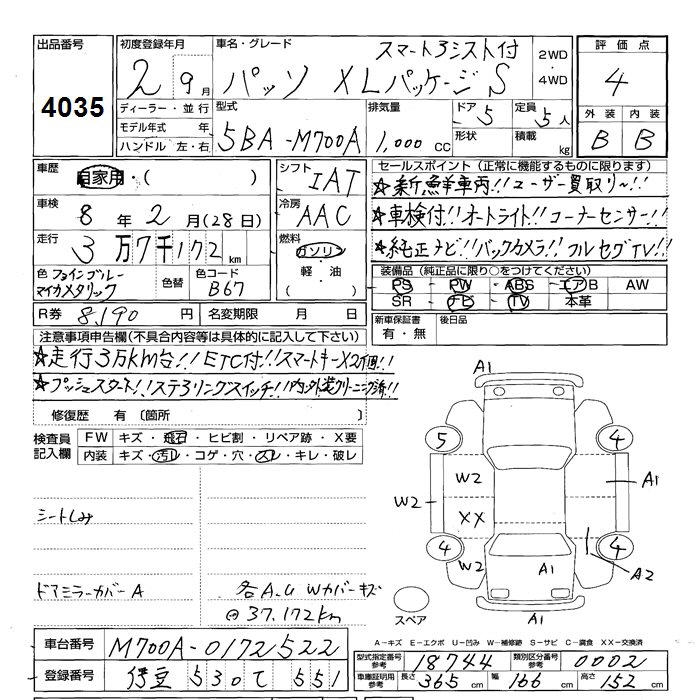 出品番号
4035
初度登録年月
2 9月
ディーラー・並行
モデル年式 年
ハンドル 左・右
車名・グレード
スマートⅢシスト付
パッソ XLパッケージS
2WD
・
4WD
型式
5BA-M700A
排気量
1,000 CC
ドア 5
形状
定員 5人
積載 kg
評価点
4
外装 内装
B B
車歴
自家用・( )
車検
8年2月(28日)
走行
3万7千172km
色 ファインブルー
マイカメタリック
色替
色コード
B67
シフト
IAT
冷房
AAC
燃料
ガソリン
・
軽・油
( )
セールスポイント(正常に機能するものに限ります)
☆新鮮車両!!ユーザー買取り~!!
☆車検付!!オートライト!!コーナーセンサー!!
☆純正ナビ!!バックカメラ!!フルセグTV!!
装備品(純正品に限り○をつけてください)
PS PW ABS エアB AW
SR ナビ TV 本革
R券 8,190円 名変期限 月 日
新車保証書
有・無
後日品
注意事項申告欄(不具合内容等は具体的に記入して下さい)
☆走行3万km台!!ETC付!!スマートキーX2個!!
☆プッシュスタート!!ステアリングスイッチ!!内・外装クリーニング済!!
修復歴 有(箇所 )
検査員
記入欄
FW キズ・飛石・ヒビ割・リペア跡・X要
内装 キズ・汚レ・コゲ・穴・スレ・キレ・破レ
シートしみ
ドアミラーカバーA
各A.U Wカバーキズ
@37.172km
A1
5
4
W2
W2
A1
XX
4
4
W2
A1
A2
A1
スペア
A-キズ E-エクボ U-凹み W-補修跡 S-サビ C-腐食 XX-交換済
車台番号 M700A-0172522
登録番号 伊豆 530 て 551
型式指定番号
参考
18744
類別区分番号
参考
0002
車庫証明用
参考
長さ 365cm 幅 166cm 高さ 152cm